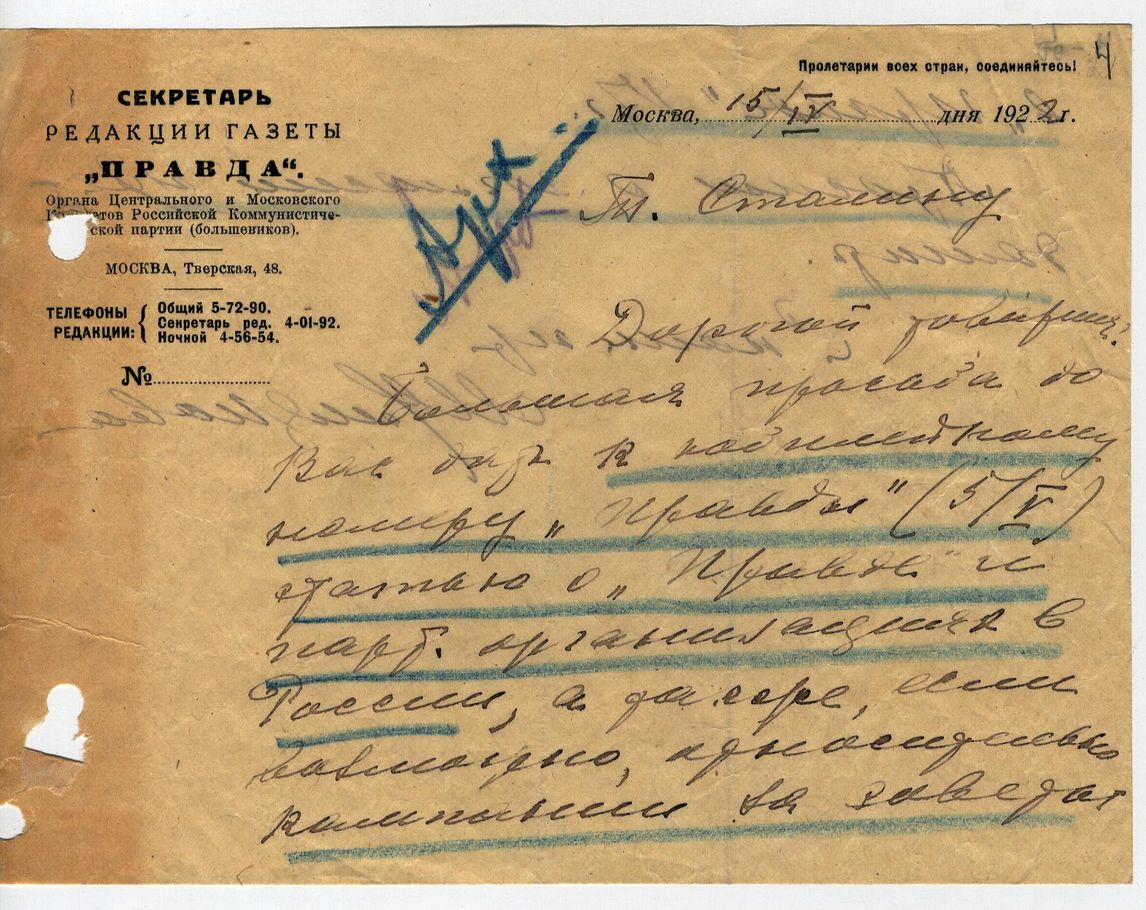 Пролетарии всех стран, соединяйтесь!
4
СЕКРЕТАРЬ
РЕДАКЦИИ ГАЗЕТЫ
„ПРАВДА“.
Органа Центрального и Московского
Российской Коммунистиче-
ской партии (большевиков).
МОСКВА, Тверская, 48.
ТЕЛЕФОНЫ РЕДАКЦИИ:
Общий 5-72-90.
Секретарь ред. 4-01-92.
Ночной 4-56-54.
№
Москва, 15/IV дня 1922 г.
Арх
Т. Сталину
Дорогой товарищ.
Большая просьба до
Вас дать к юбилейному
номеру „Правды“ (5/V)
статью о „Правде“ и
парт. организациях в
России, а также, если
возможно, относительно
кампании за